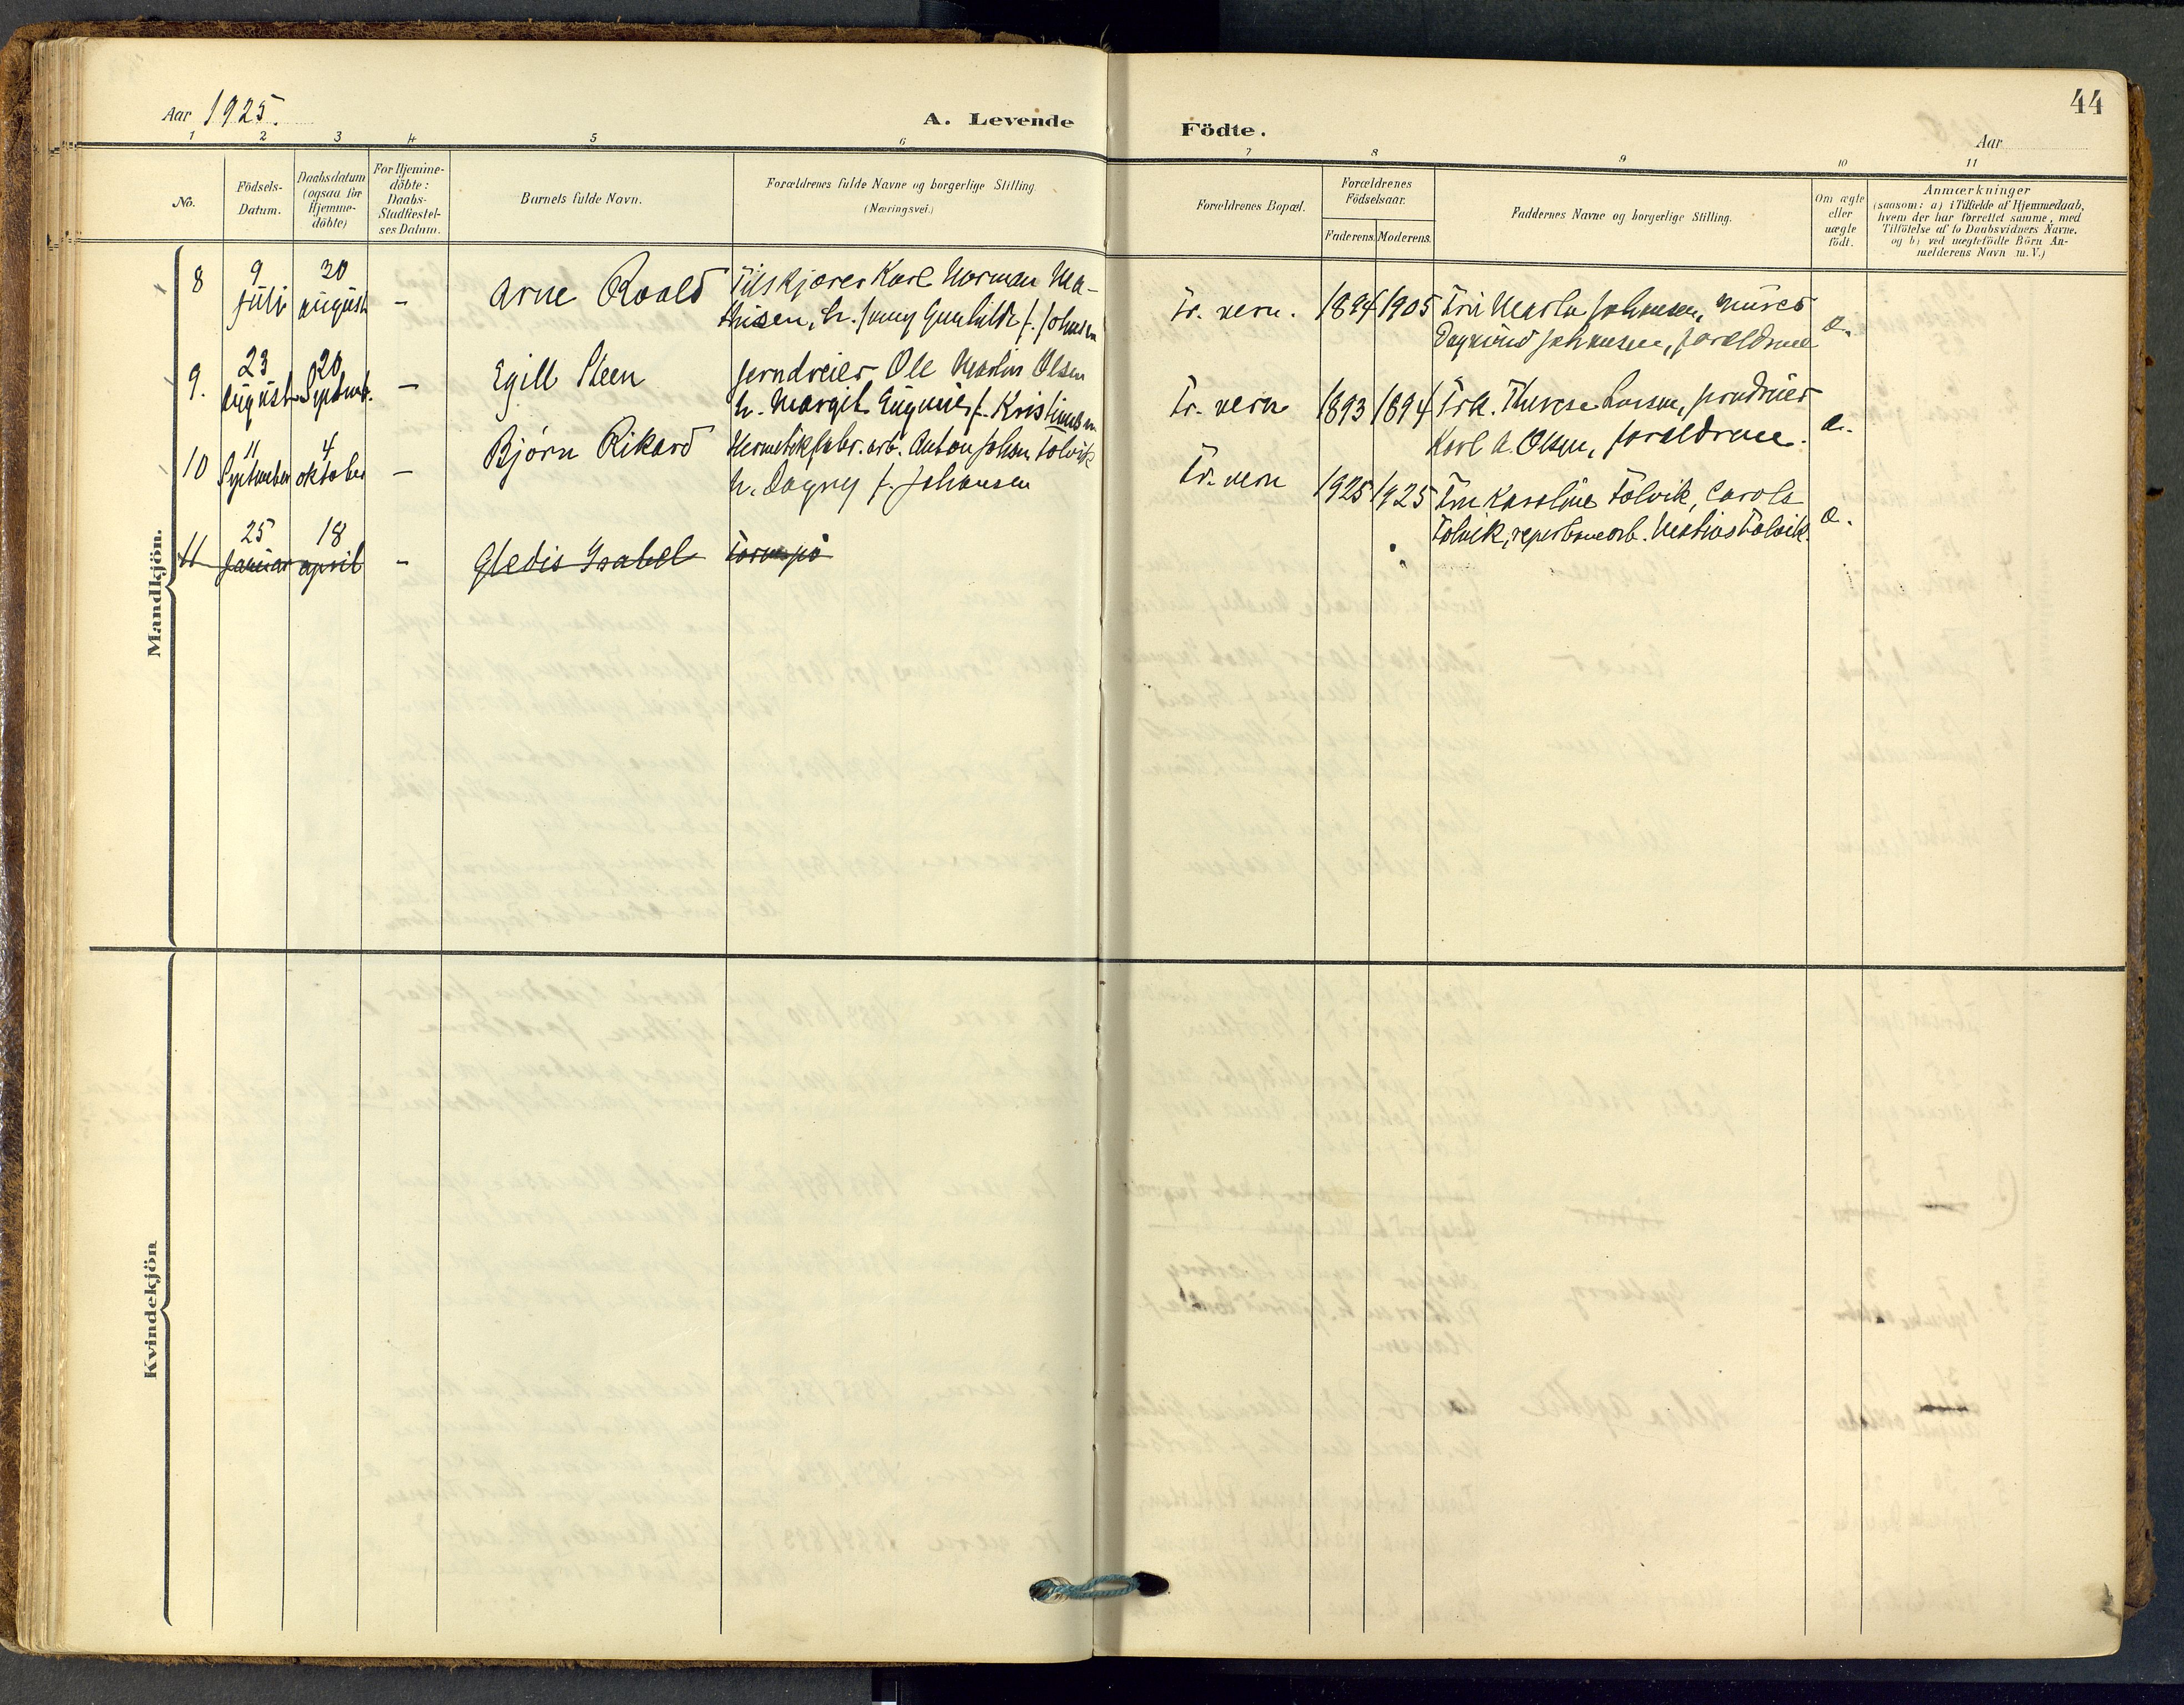 Aar 1925.
A. Levende Födte.
44
Aar
1 2 3 4 5 6 7 8 9 10 11
No.
Födsels-
Datum.
Daabsdatum
(ogsaa for
Hjemme-
döbte)
For Hjemme-
döbte:
Daabs-
Stadfæstel-
ses Datum.
Barnets fulde Navn.
Forældrenes fulde Navne og borgerlige Stilling
(Næringsvei.)
Forældrenes Bopæl.
Forældrenes
Födselsaar.
Faderens. Moderens.
Faddernes Navne og borgerlige Stilling.
Om ægte
eller
uægte
födt.
Anmærkninger
(saasom: a) i Tilfælde af Hjemmedaab,
hvem der har forrettet samme, med
Tilföielse af to Daabsvidners Navne,
og b) ved uægtefödte Börn An-
melderens Navn m. V.)
Mandkjön.
8 9 juli 20 august - Arne Roald
Tilskjærer Karl Norman Ma-
thisen, h. Jenny Gunhilde f. Johnsen
Fr. vern. 1894 1905
Fru Marta Johnsen, murer
Dagfind Johansen, foreldrene
e.
9. 23 august 20 Septemb. - Egill Steen
Jerndreier Ole Martin Olsen
h. Margit Eugenie f. Kristiansen
Fr. vern 1893 1894
Frk. Therese Larsen, jerndreier
Karl A. Olsen, foreldrene.
e.
10 11 September 4 oktober - Bjørn Rikard
Hermetikfabr. arb. Anton Johan Tolvik
h. Dagny f. Johansen
Fr. vern 1925 1925
Fru Karoline Tolvik, Carola
Tolvik, reperbanearb. Matias Tolvik.
e.
11 25 Januar 18 april - Gledis Isabel
Kvindekjön